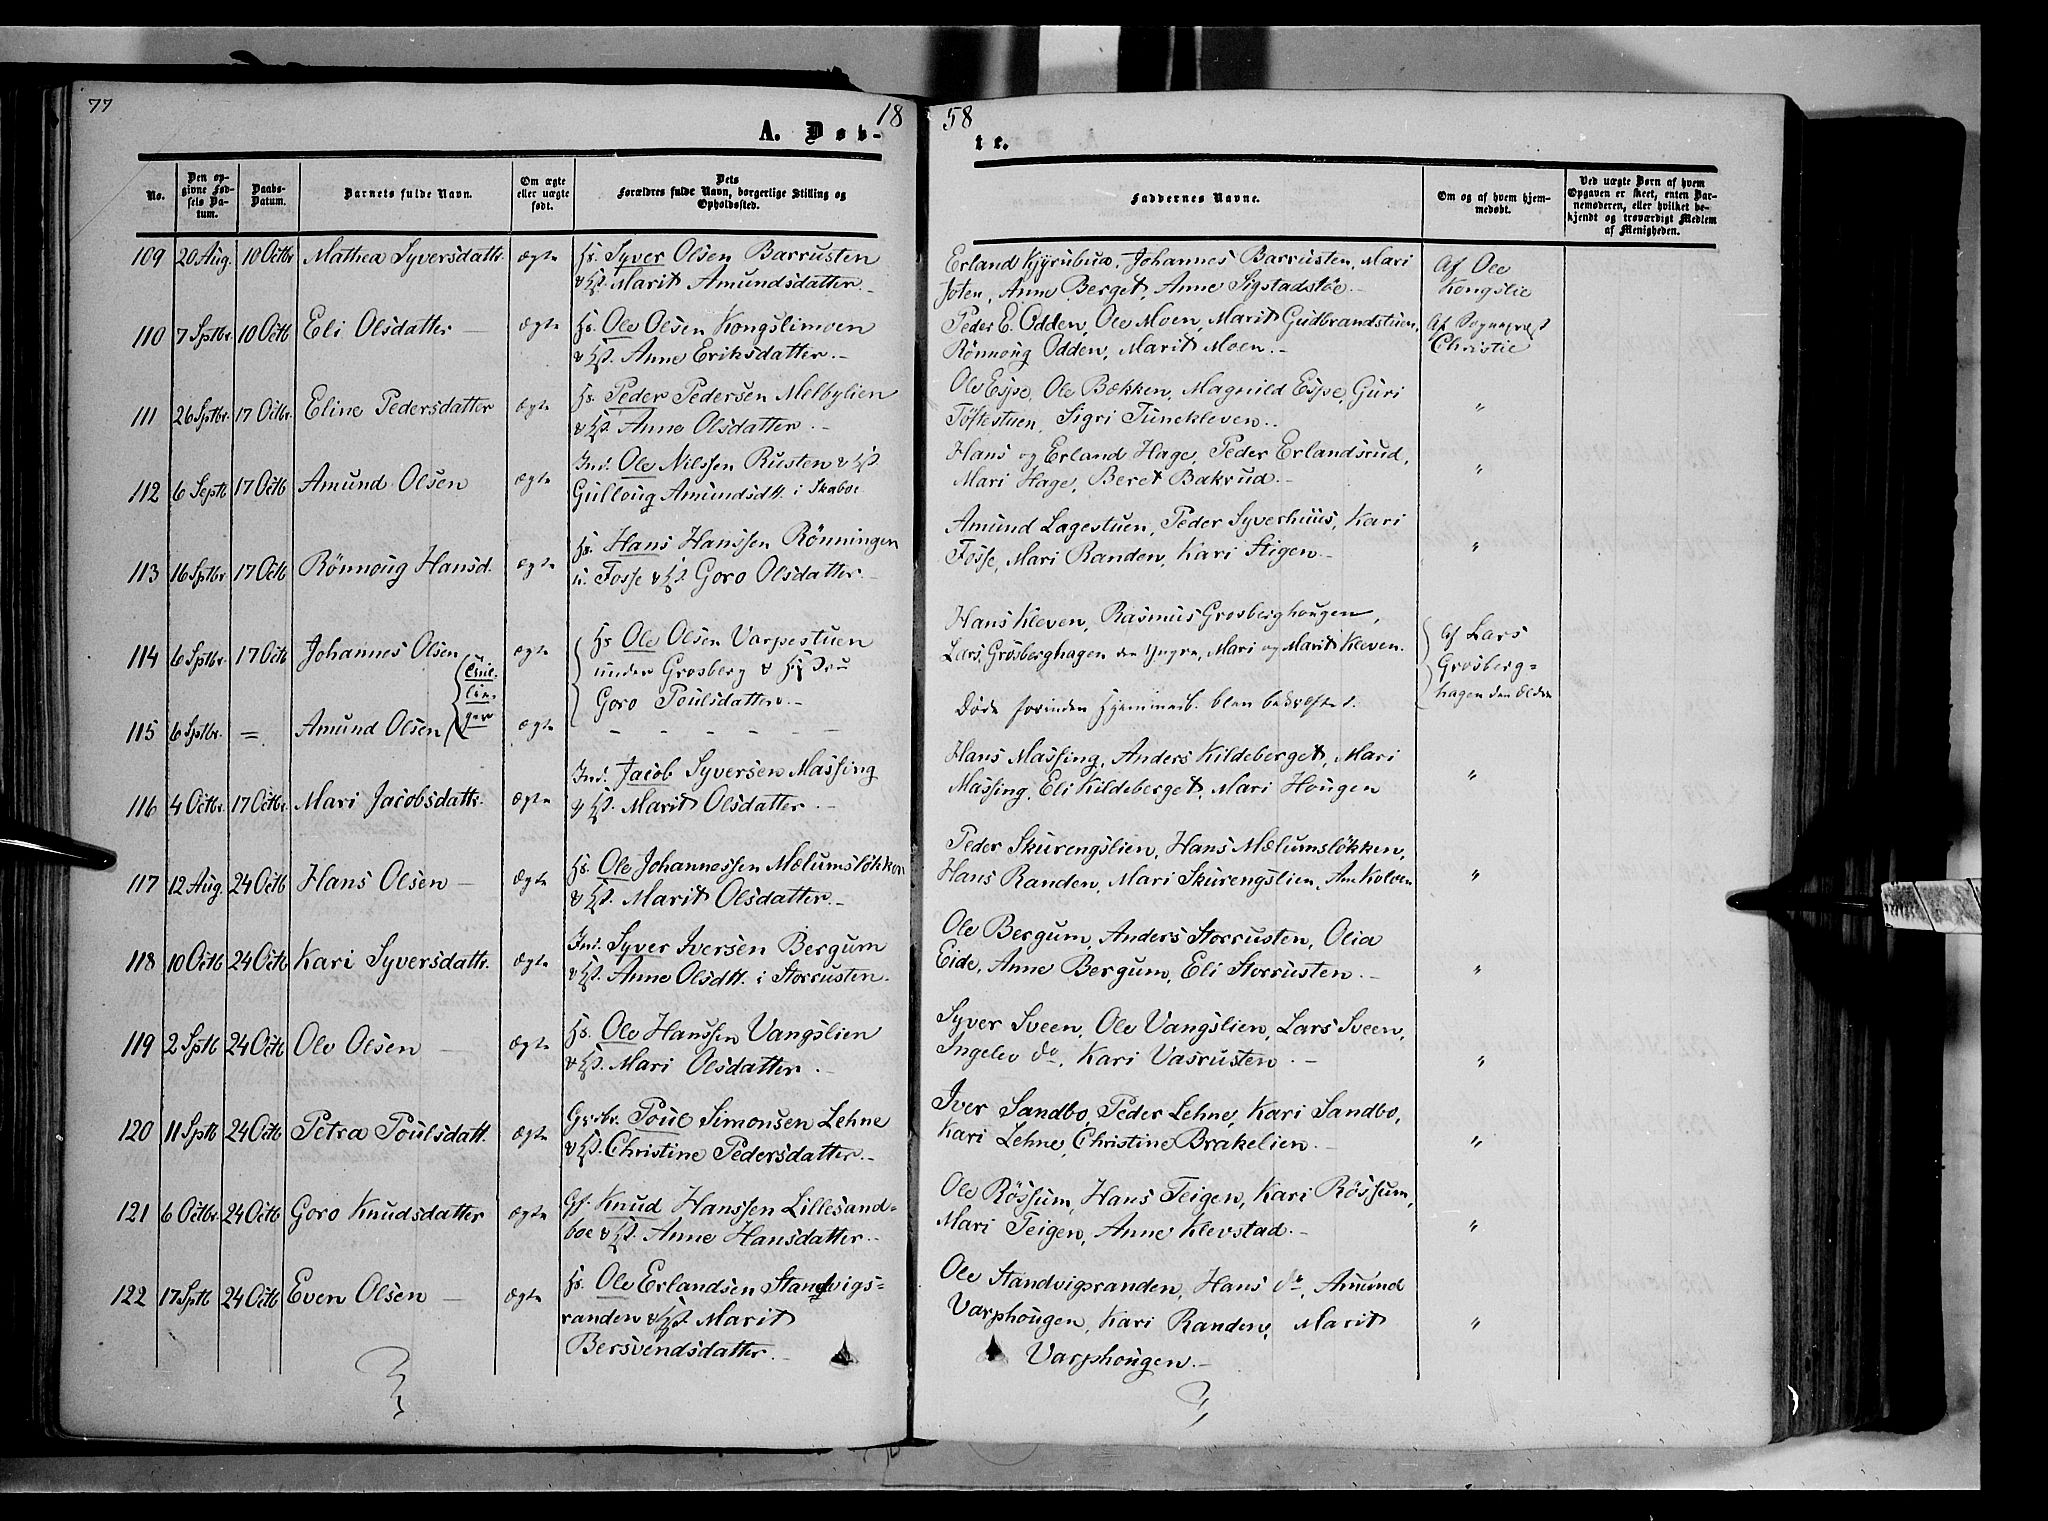 77
18
58
A. Døb-
te.
No.
Den op-
givne Fød-
sels Da-
tum.
Daabs-
Datum.
Barnets fulde Navn.
Om ægte
eller uægte
født.
Dets
Forældres fulde Navn, borgerlige Stilling og
Opholdssted.
Faddernes Navne.
Om og af hvem hjem-
medøbt.
Ved uægte Børn af hvem
Opgaven er skeet, enten Bar-
nemoderen, eller hvilket be-
kjendt og troværdigt Medlem
af Menigheden.
109 20 Aug. 10 Octbr Mathea Syversdattr. ægte Hs. Syver Olsen Barrusten
& Hst. Marit Amundsdatter.-
Erland Kjyrubua, Johannes Barrusten, Mari
Joten, Anne Berget, Anne Sigstadstøe.-
Af Ole
Kongslie
110 7 Septbr. 10 Octb Eli Olsdatter - ægte Hs. Ole Olsen Kongslimoen
& Hst. Anne Eriksdatter.-
Peder E. Odden, Ole Moen, Marit Gudbrandstuen,
Rønnoug Odden, Marit Moen.-
Af Sognepræst
Christie
111 26 Septbr. 17 Octbr. Eline Pedersdatter ægte Hs. Peder Pedersen Melbylien
& Hst. Anne Olsdatter.-
Ole Espe, Ole Bækken, Magnild Espe, Guri
Tøftestuen, Sigri Tunekleven.. "
112 6 Septb 17 Octb Amund Olsen ægte Ind. Ole Nilssen Rusten & Hst
Gulloug Amundsdtt. i Skaboe
Hans og Erland Hage, Peder Erlandsrud,
Mari Hage, Beret Bakrud.- "
113 16 Septbr 17 Octb Rönnoug Hansd. ægte Hs. Hans Hanssen Rönningen
u. Fosse & Hst Goro Olsdatter.-
Amund Lagestuen, Peder Syverhuus, Kari
Fosse, Mari Randen, Kari Stigen.- "
114 6 Septbr. 17 Octb Johannes Olsen ægte Hs Ole Olsen Varpestuen
under Grosberg & Hustru
Goro Poulsdatter.-
(Tvil-
lin-
ger
Hans Kleven, Rasmus Grosberghougen,
Lars Grosberghagen den Yngre, Mari og Marit Kleven.
Af Lars
Grosberg=
hagen den Ældre
115 6 Septbr. = Amund Olsen ægte - - - - - - -
Døde forinden Hjemmed. blev bekræftet.
116 4 Octbr. 17 Octbr. Mari Jacobsdattr. ægte Ind. Jacob Syversen Massing
& Hst. Marit Olsdatter.-
Hans Massing, Anders Kildeberget, Mari
Massing, Eli Kildeberget, Mari Hougen "
117 12 Aug. 24 Octb Hans Olsen - ægte Hs. Ole Johannessen Mælumsløkken
& Hst. Marit Olsdatter.-
Peder Skurengslien, Hans Mælumsløkken,
Hans Randen, Mari Skurengslien, Ane Kolven "
118 10 Octb 24 Octb Kari Syversdattr. ægte Ind. Syver Iversen Bergum
& Hst. Anne Olsdtt. i Storrusten.
Ole Bergum, Anders Storrusten, Olia
Eide, Anne Bergum, Eli Storrusten.- "
119 2 Septb 24 Octb Ole Olsen - ægte Hs. Ole Hanssen Vangslien
& Hst. Mari Olsdatter.-
Syver Sveen, Ole Vangslien, Lars Sveen,
Ingelev do, Kari Vasrusten.- "
120 11 Septb 24 Octb Petra Poulsdatt. ægte Grdbr. Poul Simonsen Lehne
& Hst. Christine Pedersdatter.-
Iver Sandbo, Peder Lehne, Kari Sandbo,
Kari Lehne, Christine Brakelien.- "
121 6 Octbr. 24 Octb Goro Knudsdatter ægte Gf. Knud Hanssen Lillesand=
boe & Hst. Anne Hansdatter.-
Ole Røssum, Hans Teigen, Kari Røssum,
Mari Teigen, Anne Klevstad.- "
122 17 Septb 24 Octb Even Olsen - ægte Hs. Ole Erlandsen Standvigs=
randen & Hst. Marit
Bersvendsdatter.-
Ole Standvigsranden, Hans do, Amund
Varphougen, Kari Randen, Marit
Varphougen.- "